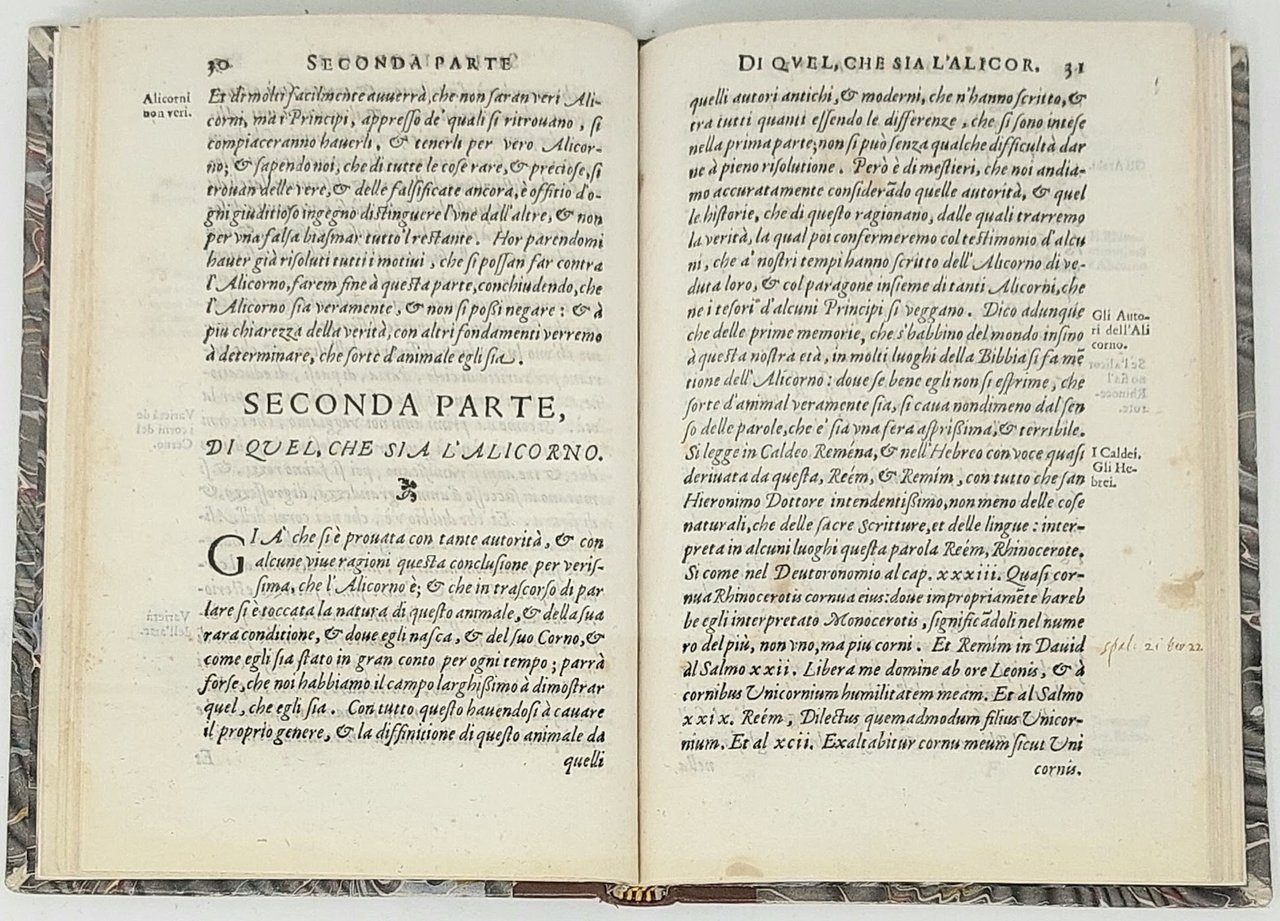 30 SECONDA PARTE
Alicorni
non veri.
Et di molti facilmente auuerrà, che non saran veri Ali-
corni, mà i Principi, appresso de' quali si ritrouano, si
compiaceranno hauerli, & tenerli per vero Alicor-
no; & sapendo noi, che di tutte le cose rare, & preciose, si
trouan delle vere, & delle falsificate ancora, è offitio d'o-
gni giuditioso ingegno distinguere l'vne dall'altre, & non
per vna falsa biasmar tutto'l restante. Hor parendomi
hauer già risoluti tutti i motiui, che si possan far contra
l'Alicorno, farem fine à questa parte, conchiudendo, che
l'Alicorno sia veramente, & non si possi negare: & à
piu chiarezza della verità, con altri fondamenti verremo
à determinare, che sorte d'animale egli sia.
SECONDA PARTE,
DI QUEL, CHE SIA L'ALICORNO.
GIA' che si è prouata con tante autorità, & con
alcune viue ragioni questa conclusione per veris-
sima, che l'Alicorno è; & che in trascorso di par
lare si è toccata la natura di questo animale, & della sua
rara conditione, & doue egli nasca, & del suo Corno, &
come egli sia stato in gran conto per ogni tempo; parrà
forse, che noi habbiamo il campo larghissimo à dimostrar
quel, che egli sia. Con tutto questo hauendosi à cauare
il proprio genere, & la diffinitione di questo animale da
quelli
DI QVEL, CHE SIA L'ALICOR. 31
quelli autori antichi, & moderni, che n'hanno scritto, &
tra tutti quanti essendo le differenze, che si sono intese
nella prima parte; non si può senza qualche difficultà dar
ne à pieno risolutione. Però è di mestieri, che noi andia-
mo accuratamente considerãdo quelle autorità, & quel
le historie, che di questo ragionano, dalle quali trarremo
la verità, la qual poi confermeremo col testimonio d'alcu
ni, che a' nostri tempi hanno scritto dell'Alicorno di ve-
duta loro, & col paragone insieme di tanti Alicorni, che
ne i tesori d'alcuni Principi si veggano. Dico adunque
che delle prime memorie, che s'habbino del mondo insino
à questa nostra età, in molti luoghi della Bibbia si fa mẽ
tione dell'Alicorno: doue se bene egli non si esprime, che
sorte d'animal veramente sia, si caua nondimeno dal sen
so delle parole, che e' sia vna fera asprissima, & terribile.
Si legge in Caldeo Remèna, & nell'Hebreo con voce quasi
deriuata da questa, Reém, & Remím, con tutto che san
Hieronimo Dottore intendentissimo, non meno delle cose
naturali, che delle sacre Scritture, et delle lingue: inter-
preta in alcuni luoghi questa parola Reém, Rhinocerote.
Si come nel Deutoronomio al cap. xxxiii. Quasi cor-
nua Rhinocerotis cornua eius: doue impropriamẽte hareb
be egli interpretato Monocerotis, significãdoli nel nume
ro del più, non vno, ma piu corni. Et Remím in Dauid
al Salmo xxii. Libera me domine ab ore Leonis, & à
cornibus Unicornium humilitatem meam. Et al Salmo
xxix. Reém, Dilectus quemadmodum filius Unicor-
nium. Et al xcii. Exaltabitur cornu meum sicut Uni
cornis.
Gli Auto-
ri dell'Ali
corno.
I Caldei.
Gli He-
brei.